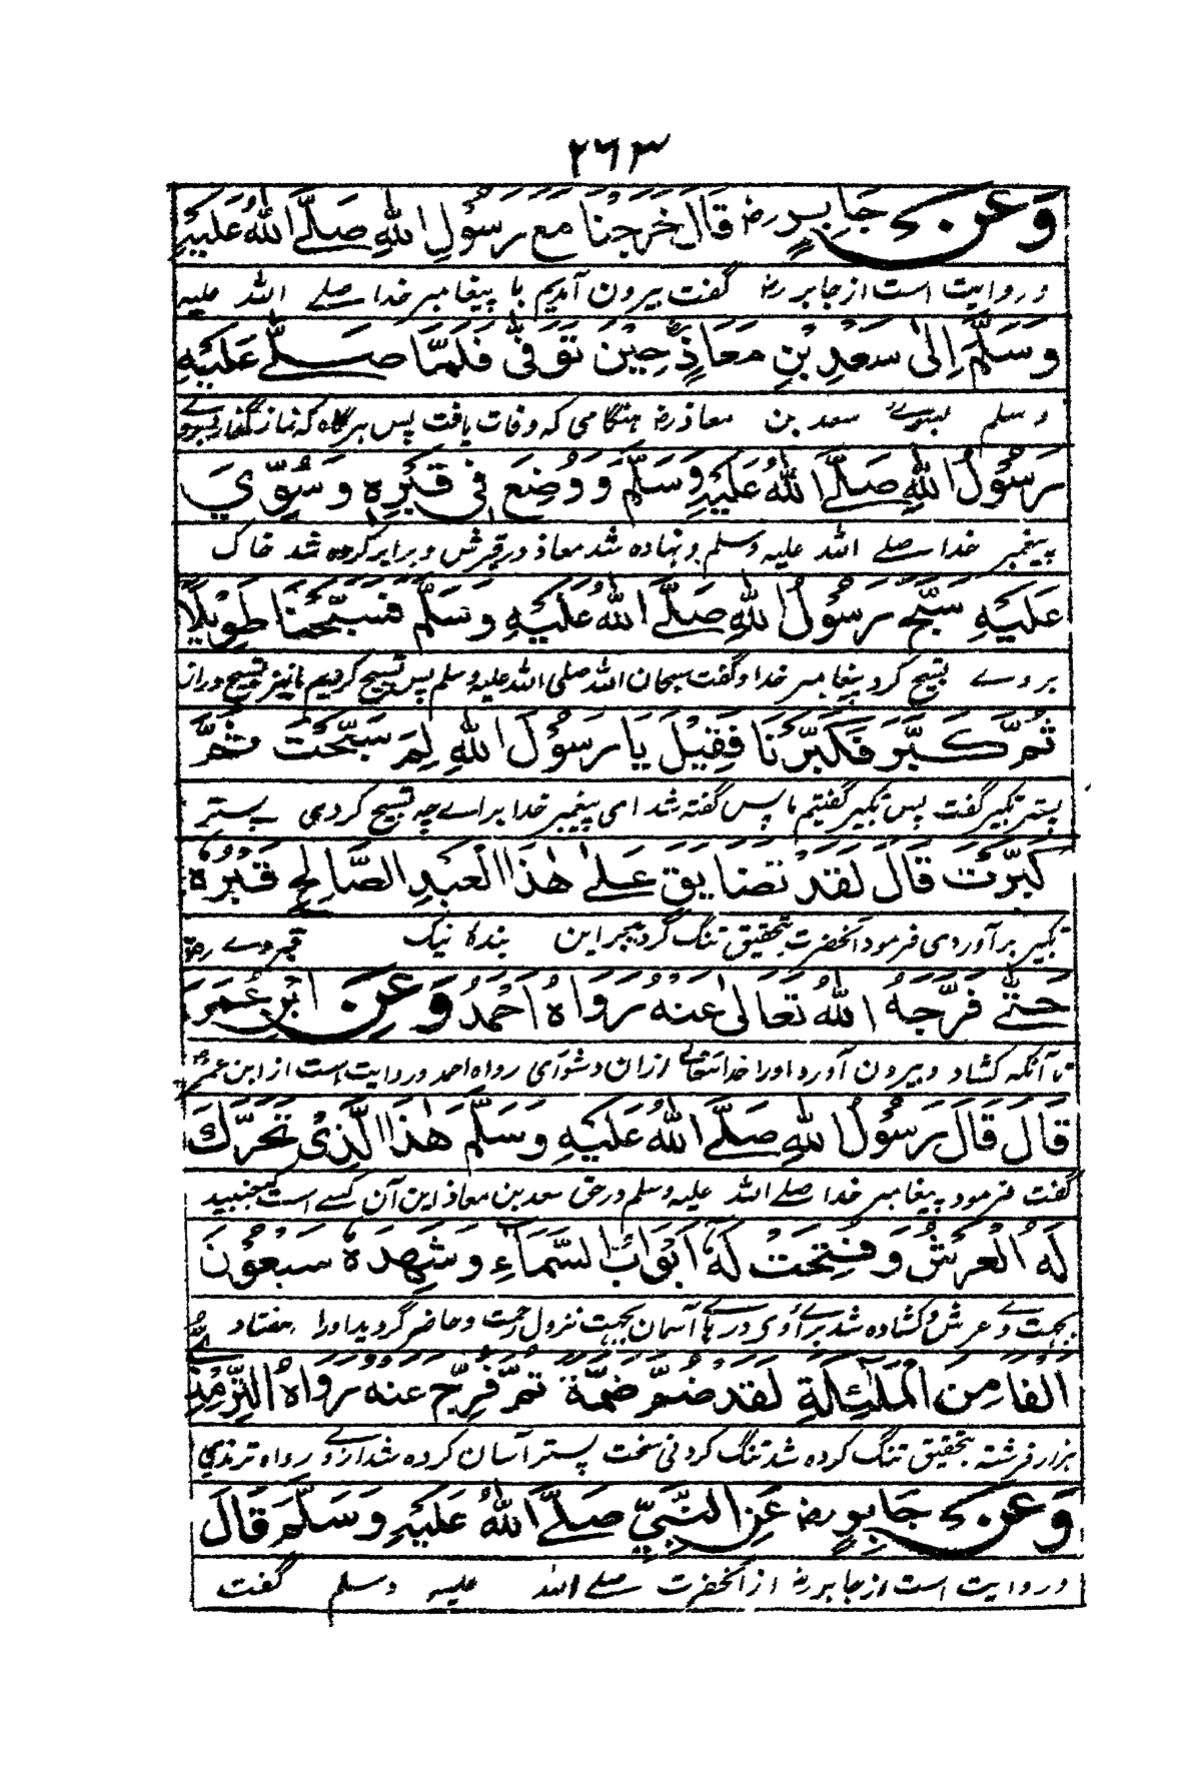 ۲۶۳
وَعَنْ جَابِرٍ رض قَالَ خَرَجْنَا مَعَ رَسُوْلِ اللّٰهِ صَلَّے اللّٰهُ عَلَيْهِ
و روایت است از جابر رض گفت بیرون آمدیم با پیغامبر خدا صلے اللّٰہ علیہ
وَسَلَّمَ اِلٰى سَعْدِ بْنِ مَعَاذٍ حِيْنَ تَوَفّٰى فَلَمَّا صَلّے عَلَيْهِ
و سلم بسوے سعد بن معاذ رض ہنگامی کہ وفات یافت پس ہرگاہ کہ نماز گذارد بروے
رَسُوْلُ اللّٰهِ صَلَّے اللّٰهُ عَلَيْهِ وَسَلَّمَ وَوُضِعَ فِى قَبْرِهٖ وَسُوِّيَ
پیغمبر خدا صلے اللّٰہ علیہ وسلم و نہادہ شد معاذ در قبرش و برابر کردہ شد خاک
عَلَيْهِ سَبَّحَ رَسُوْلُ اللّٰهِ صَلَّے اللّٰهُ عَلَيْهِ وَسَلَّمَ فَسَبَّحْنَا طَوِيْلًا
بروے تسبیح کرد پیغامبر خدا و گفت سبحان اللّٰہ صلی اللّٰہ علیہ وسلم پس تسبیح کردیم ما نیز تسبیح دراز
ثُمَّ كَبَّرَ فَكَبَّرْنَا فَقِيْلَ يَا رَسُوْلَ اللّٰهِ لِمَ سَبَّحْتَ ثُمَّ
پستر تکبیر گفت پس تکبیر گفتیم ما پس گفتہ شد ای پیغمبر خدا براے چہ تسبیح کردی پستر
كَبَّرْتَ قَالَ لَقَدْ تَضَايَقَ عَلٰے هٰذَا الْعَبْدِ الصَّالِحِ قَبْرُهٗ
تکبیر برآوردی فرمود آنحضرت بتحقیق تنگ گردید برین بندہ نیک قبر وے
حَتّٰے فَرَّجَهُ اللّٰهُ تَعَالٰى عَنْهُ رَوَاهُ اَحْمَدُ وَعَنِ ابْنِ عُمَرَ
تا آنکہ کشاد و بیرون آورد اورا خدا تعالے ازان دشواری رواہ احمد و روایت است از ابن عمر رض
قَالَ قَالَ رَسُوْلُ اللّٰهِ صَلَّے اللّٰهُ عَلَيْهِ وَسَلَّمَ هٰذَا الَّذِىْ تَحَرَّكَ
گفت فرمود پیغامبر خدا صلے اللّٰہ علیہ وسلم در حق سعد بن معاذ این آن کسے است کہ جنبید
لَهُ الْعَرْشُ وَفُتِحَتْ لَهٗ اَبْوَابُ السَّمَاءِ وَشَهِدَهٗ سَبْعُوْنَ
بجہت وے عرش و کشادہ شد براے وی درہاے آسمان بجہت نزول رحمت و حاضر گردید اورا ہفتاد
اَلْفًا مِنَ الْمَلٰئِكَةِ لَقَدْ ضُمَّ ضَمَّةً ثُمَّ فُرِّجَ عَنْهُ رَوَاهُ التِّرْمِذِىُّ
ہزار فرشتہ بتحقیق تنگ کردہ شد تنگ کردنی سخت پستر آسان کردہ شد ازوے رواہ ترمذی
وَعَنْ جَابِرٍ رض عَنِ النَّبِيِّ صَلَّے اللّٰهُ عَلَيْهِ وَسَلَّمَ قَالَ
و روایت است از جابر رض از آنحضرت صلے اللّٰہ علیہ وسلم گفت